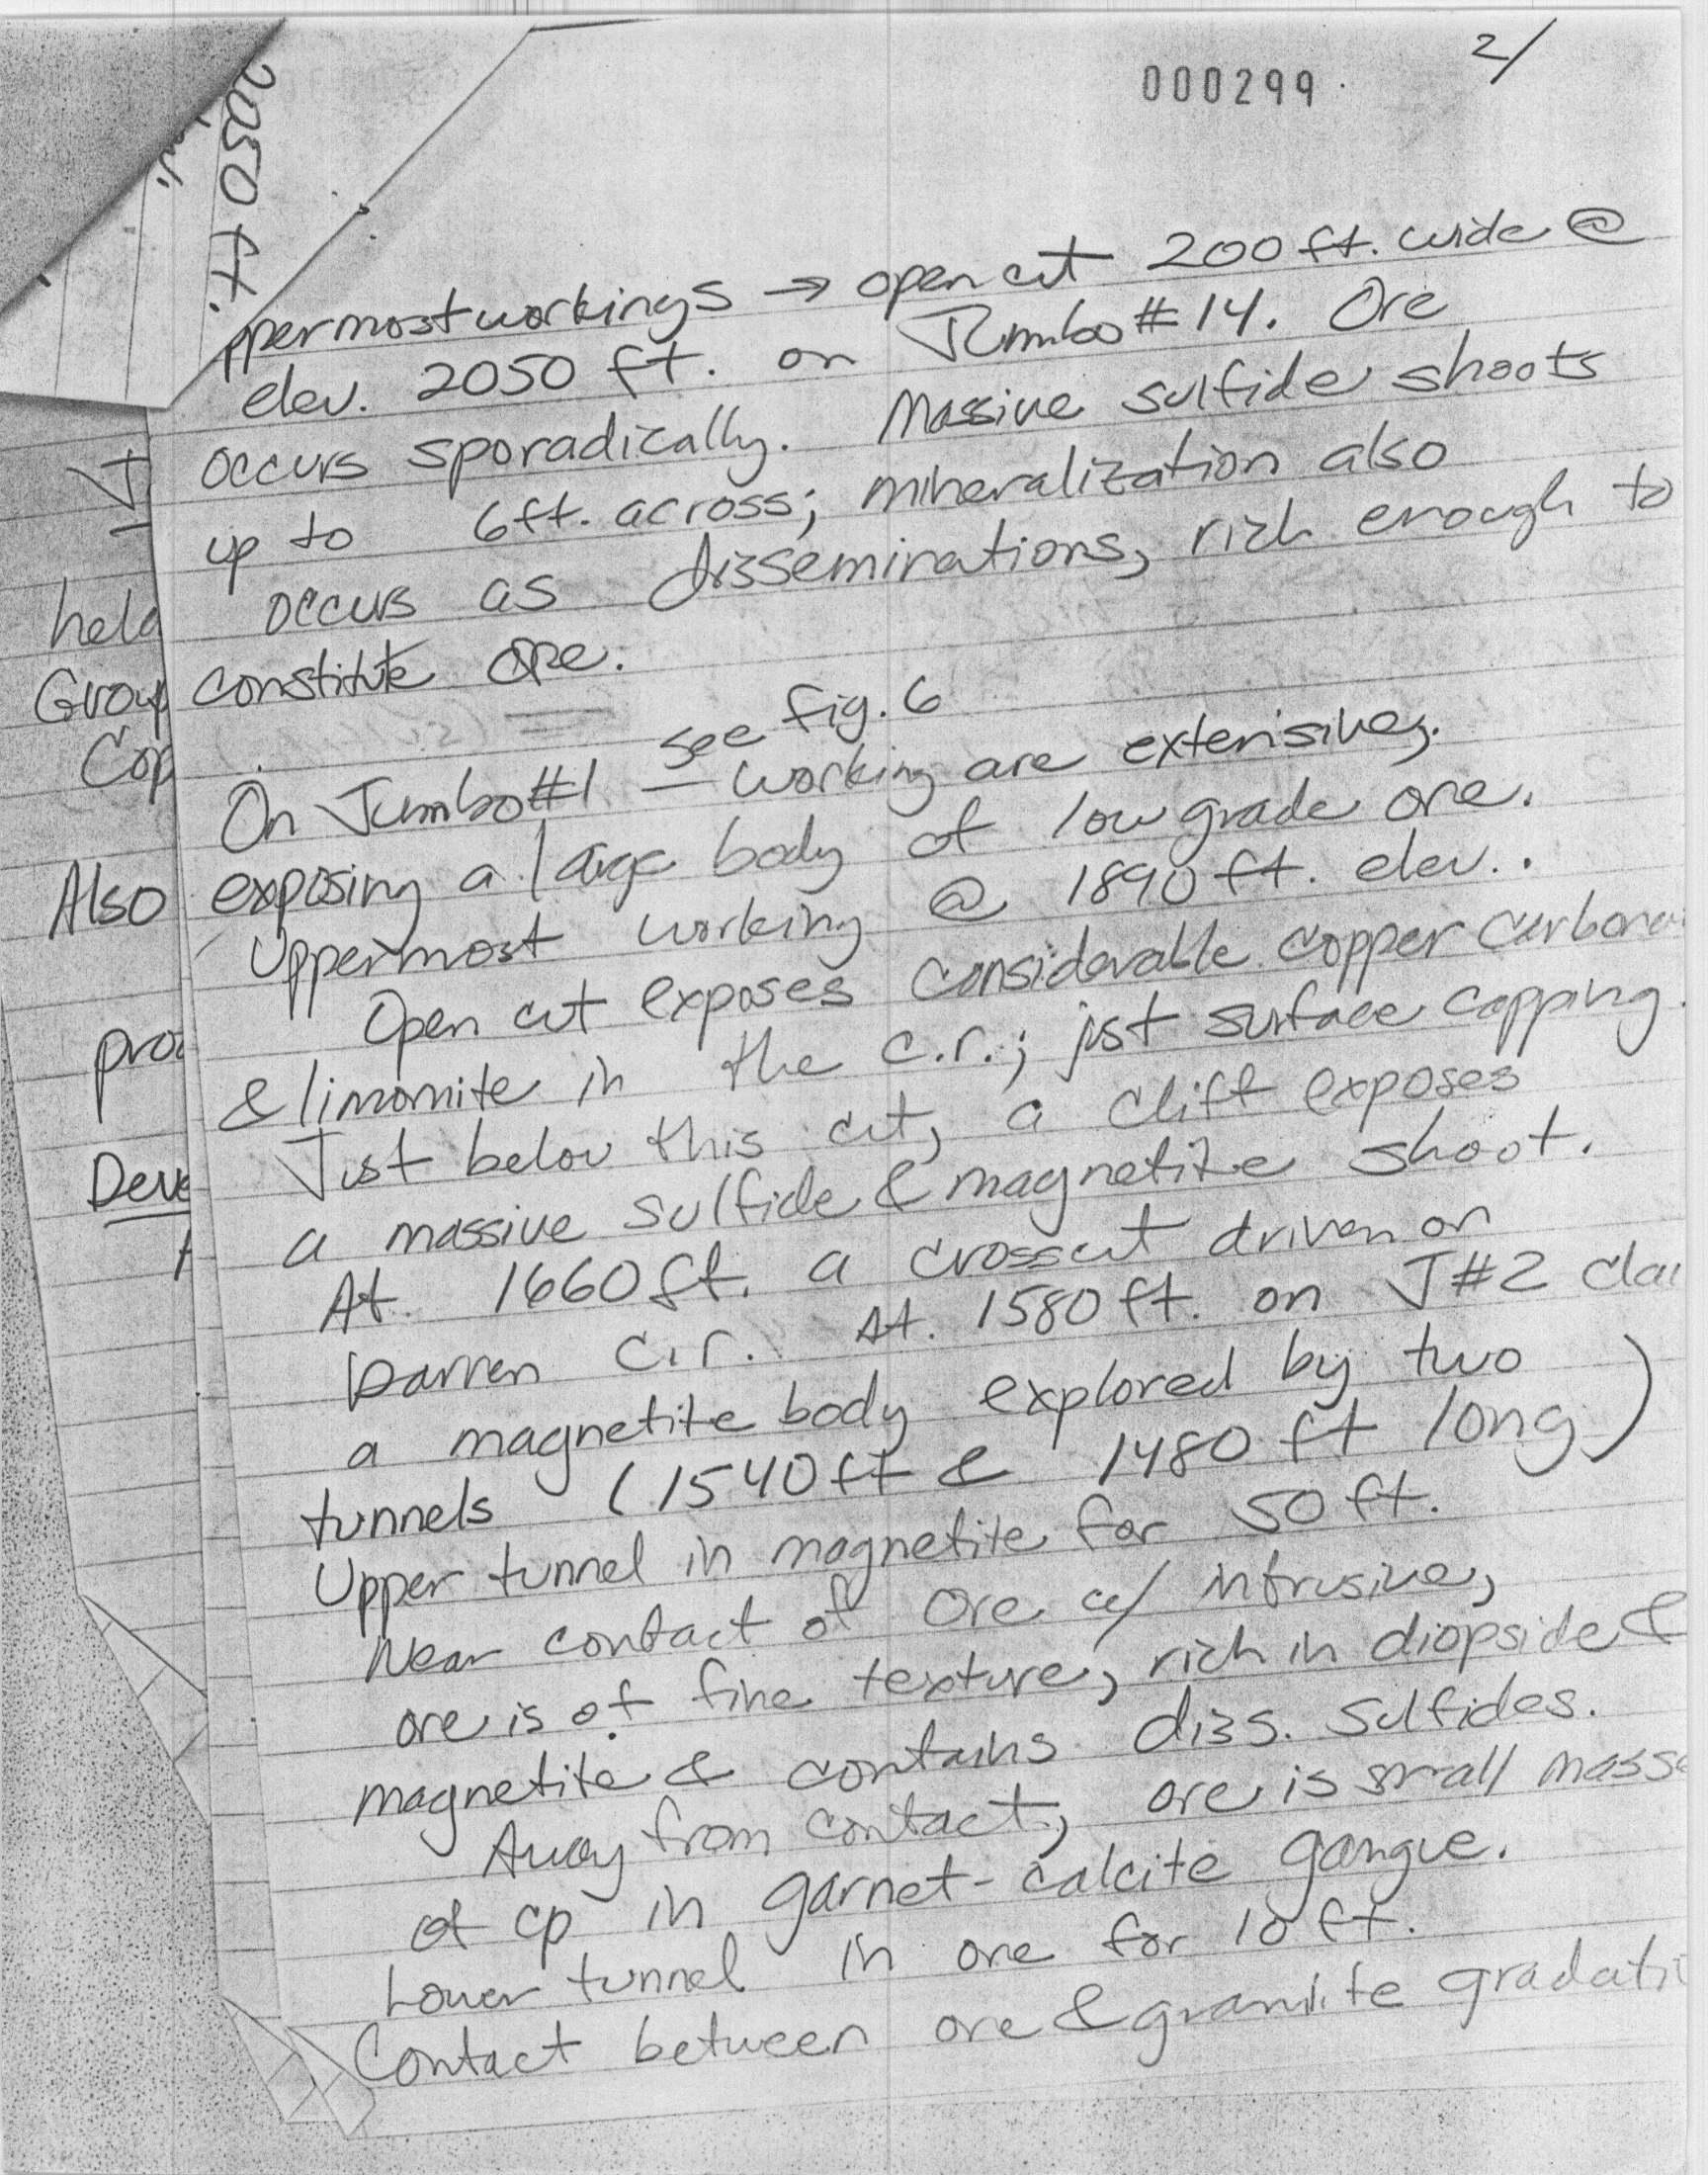 2/
000299
2050 ft.
ppermost workings → open cut 200 ft. wide @
elev. 2050 ft. on Jumbo #14. Ore
occurs sporadically. Massive sulfide shoots
up to 6 ft. across; mineralization also
occurs as disseminations, rich enough to
constitute ore.
see fig. 6
On Jumbo #1 — working are extensive,
exposing a large body of low grade ore.
Uppermost working @ 1890 ft. elev..
Open cut exposes considerable copper carbona
& limonite in the c.r.; just surface capping.
Just below this cut, a cliff exposes
a massive sulfide & magnetite shoot.
At 1660 ft. a crosscut driven on
barren c.r. At. 1580 ft. on J#2 clai
a magnetite body explored by two
tunnels (1540 ft & 1480 ft long)
Upper tunnel in magnetite for 50 ft.
Near contact of ore w/ intrusive,
ore is of fine texture, rich in diopside &
magnetite & contains diss. sulfides.
Away from contact, ore is small masse
of cp in garnet-calcite gangue.
Lower tunnel in ore for 10 ft.
Contact between ore & granite gradati
held
Group
Cop
Also
prod
Deve